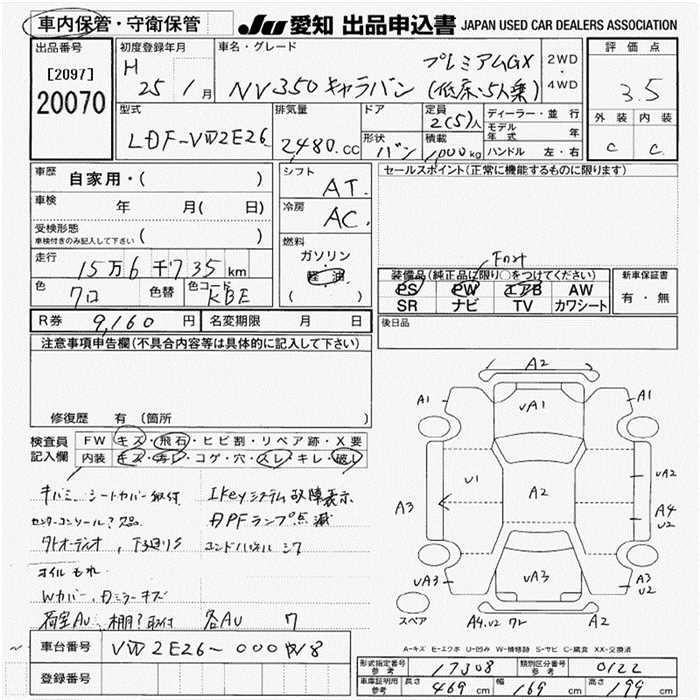 車内保管・守衛保管
JU 愛知 出品申込書 JAPAN USED CAR DEALERS ASSOCIATION
出品番号
[2097]
20070
初度登録年月
H 25年 1月
車名・グレード
NV350キャラバン
プレミアムGX
(低床・5人乗)
2WD
・
4WD
評価点
3.5
外装 内装
C C
型式
LDF-VW2E26
排気量
2,480.CC
ドア
形状
バン
定員
2(5)人
積載
1,000kg
ディーラー・並行
モデル年式 年
ハンドル 左・右
車歴
自家用・( )
車検 年 月( 日)
受検形態
車検付きのみ記入して下さい ( )
走行
15万6千735km
色
クロ
色替
色コード
KBE
シフト
AT.
冷房
AC.
燃料
ガソリン
軽油
( )
セールスポイント(正常に機能するものに限ります)
装備品(純正品に限り○をつけてください)
PS PW エアB AW
SR ナビ TV カワシート
新車保証書
有・無
後日品
R券 9,160 円 名変期限 月 日
注意事項申告欄(不具合内容等は具体的に記入して下さい)
修復歴 有(箇所
検査員
記入欄
FW キズ・飛石・ヒビ割・リペア跡・X要
内装 キズ・汚レ・コゲ・穴・スレ・キレ・破レ
キバミ、シートカバー取付
センターコンソール
外オーディオ、下廻りS
オイルもれ
Wカバー、Dミラーキズ
荷室AU、棚 取付
Ikeyシステム故障表示
DPFランプ点滅
各AU ワ
A2
A1
UA1
A1
U1
A2
UA2
A3
A4
U2
UA3
UA3
A3
U2
スペア
A4.U2 ワレ
A2
A-キズ E-エクボ U-凹み W-補修跡 S-サビ C-腐食 XX-交換済
車台番号 VW2E26-000818
登録番号
形式指定番号
参考
17308
類別区分番号
参考
0122
車庫証明用
参考
長さ 469 cm 幅 169 cm 高さ 199 cm